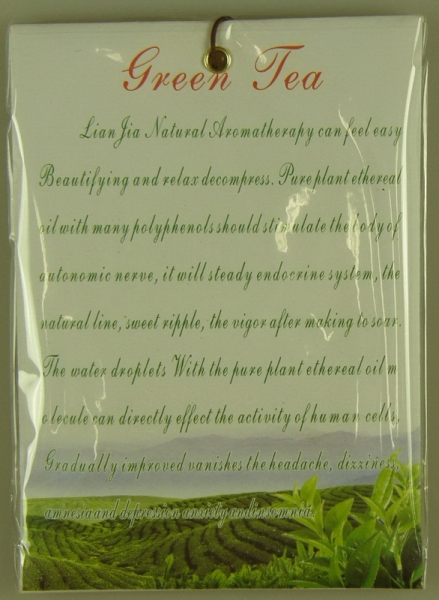 Green Tea
LianJia Natural Aromatherapy can feel easy
Beautifying and relax decompress. Pure plant ethereal
oil with many polyphenols should stimulate the body of
autonomic nerve, it will steady endocrine system, the
natural line, sweet ripple, the vigor after making to soar.
The water droplets With the pure plant ethereal oil m
olecule can directly effect the activity of human cells,
Gradually improved vanishes the headache, dizziness,
amnesia and depression anxiety and insomnia.